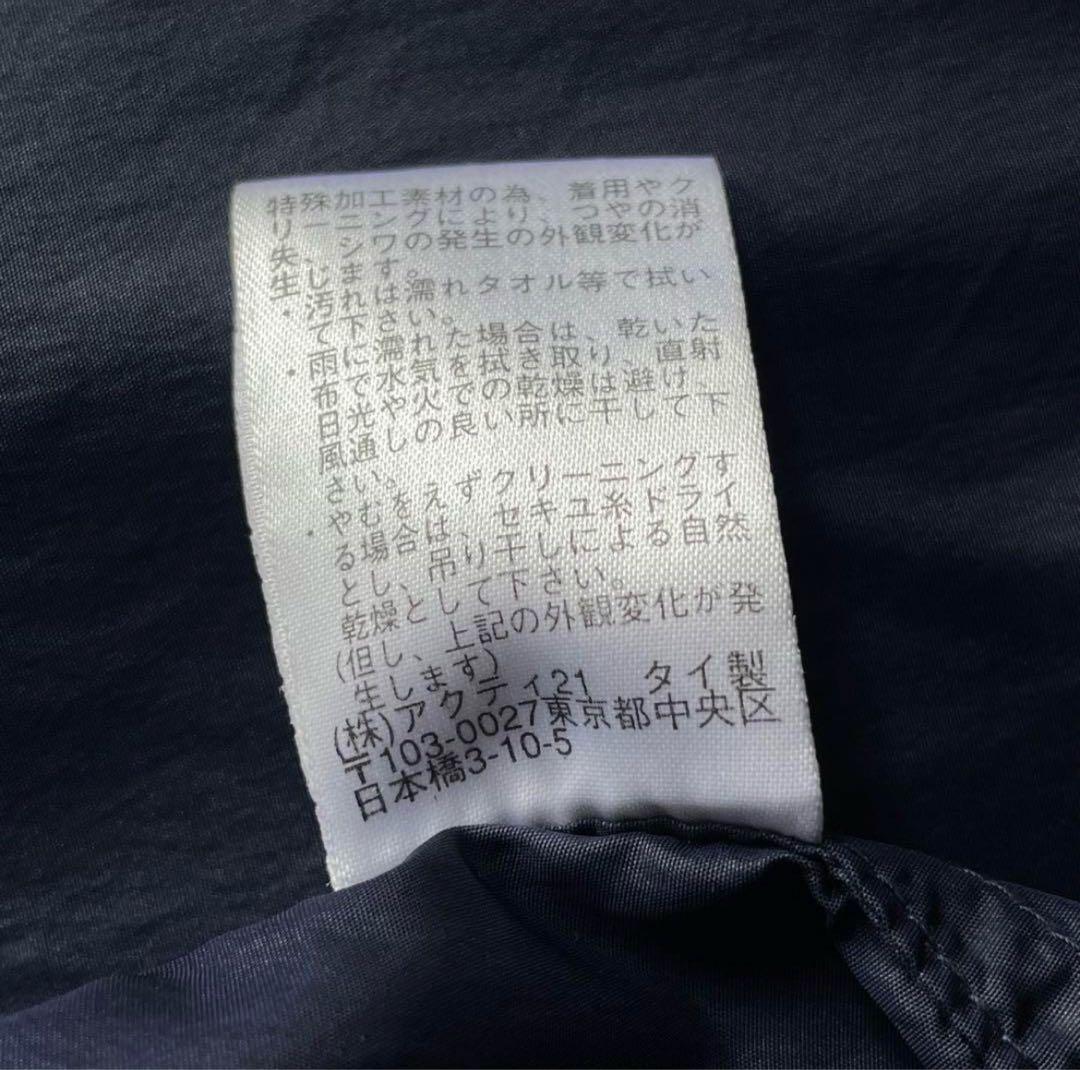 特殊加工素材の為、着用やク
リーニングにより、つやの消
失、シワの発生の外観変化が
生じます。
・汚れは濡れタオル等で拭い
て下さい。
・雨に濡れた場合は、乾いた
布で水気を拭き取り、直射
日光や火での乾燥は避け、
風通しの良い所に干して下
さい。
・やむをえず、クリーニングす
る場合は、セキユ系ドライ
とし、吊り干しによる自然
乾燥として下さい。
(但し、上記の外観変化が発
生します)
(株)アクティ21 タイ製
〒103-0027東京都中央区
日本橋3-10-5